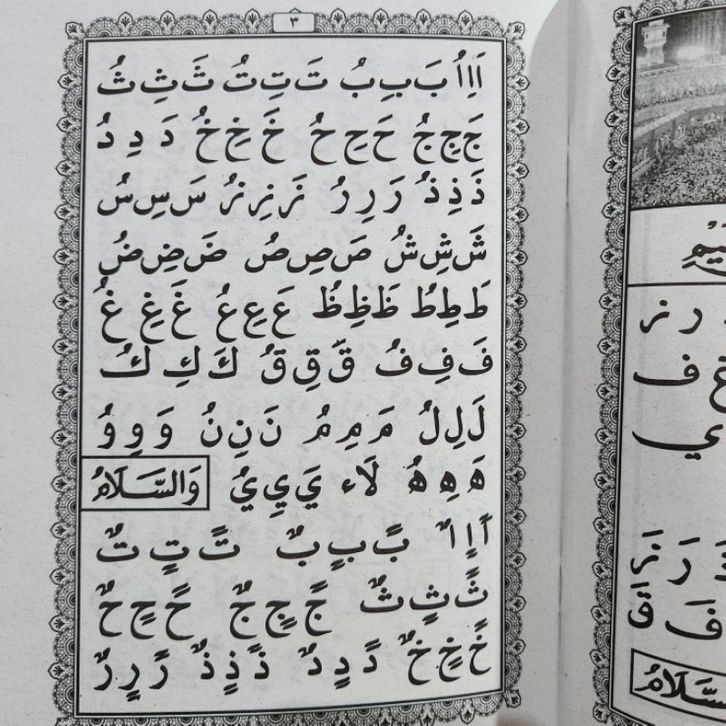 ٣
اَاِاُ بَبِبُ تَتِتُ ثَثِثُ
جَجِجُ حَحِحُ خَخِخُ دَدِدُ
ذَذِذُ رَرِرُ زَزِزُ سَسِسُ
شَشِشُ صَصِصُ ضَضِضُ
طَطِطُ ظَظِظُ عَعِعُ غَغِغُ
فَفِفُ قَقِقُ كَكِكُ
لَلِلُ مَمِمُ نَنِنُ وَوِوُ
هَهِهُ لَاء يَيِيُ وَالسَّلَامُ
اًاٍاٌ بًبٍبٌ تًتٍتٌ
ثًثٍثٌ جًجٍجٌ حًحٍحٌ
خًخٍخٌ دًدٍدٌ ذًذٍذٌ رًرٍرٌ